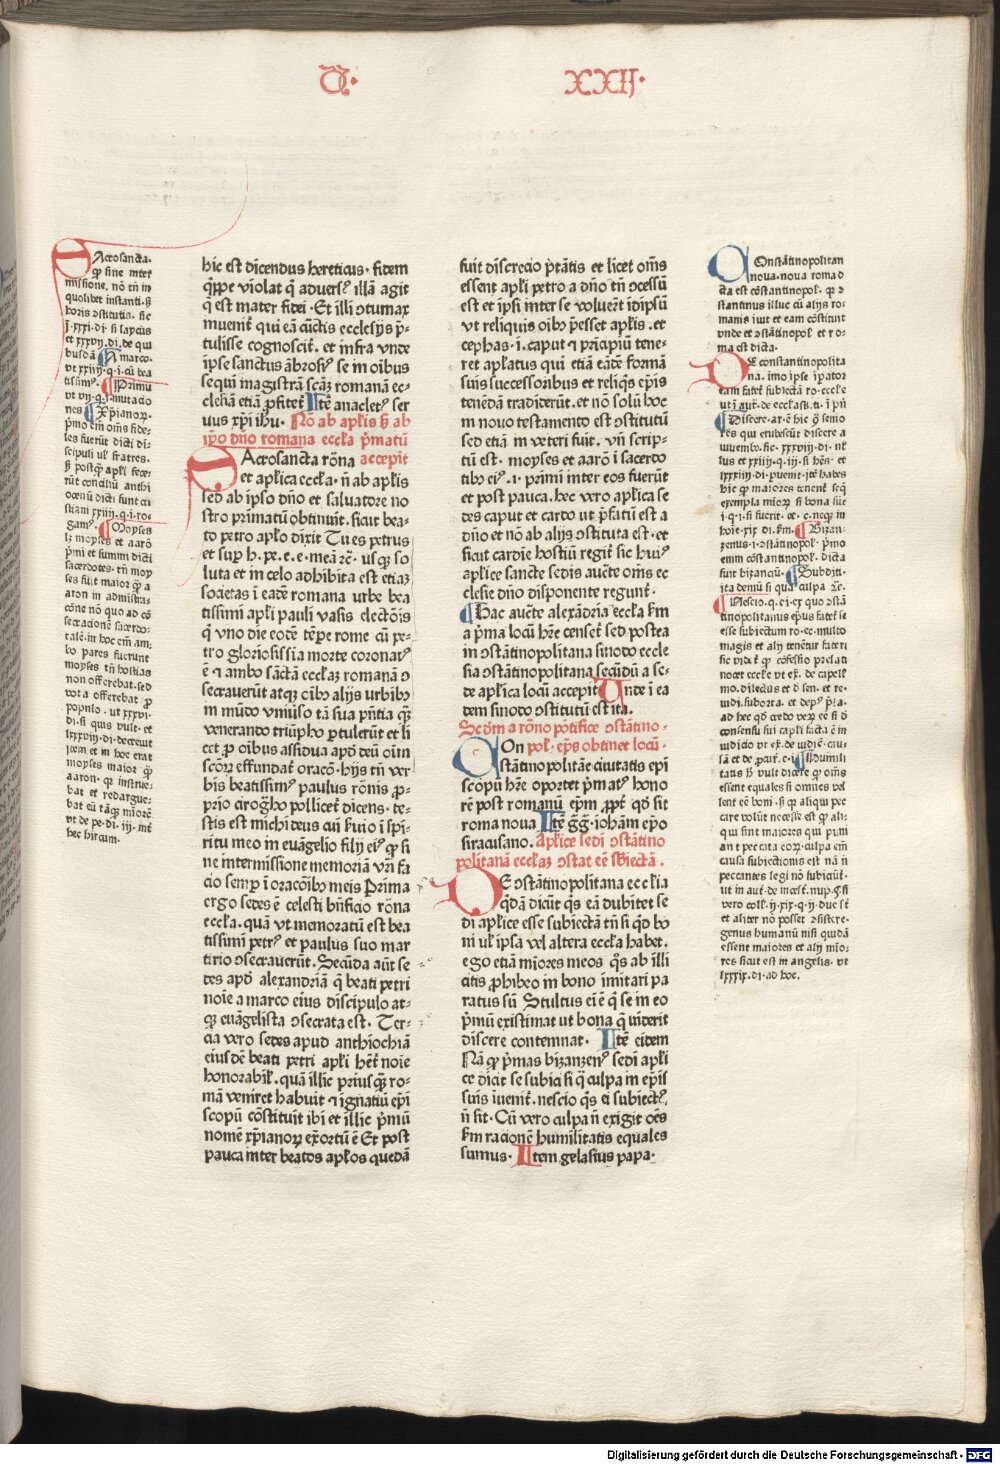 D. XXII.
Acrosancta.
qͥ sine inter
missione. nō tn̄ in
quolibet instanti. ß
horis ɔstitutis. sic
et xxvij. di. de qui
busdā ¶ A marco.
tissim⁹. ¶ Primū
ut vij. q. i. mutatio
nes ¶ Xp̄ianoꝝ.
p̄mo em̄ om̄s fide‍
les fuerūt dicti di‍
scipuli ul̓ fratres.
rūt conciliū anthi
ocenū dicti sunt cri
stiani xxiiij. q. i. ro‍
gam⁹. ¶ Moyses
lꝫ moyses et aarō
p̄mi et summi dicti
sacerdotes. tn̄ moy
ses fuit maior qͣꝫ a
aron in administra‍
cōne nō quo ad cō
secracionē sacerdo‍
tale. in hoc em̄ am‍
bo pares fuerunt
moyses tn̄ hostias
non offerebat. sed
vota offerebat ꝓ
populo. ut xxxvi.
di. si quis vult. et
lxxxviij. di. decreuit
item et in hoc erat
moyses maior qͣꝫ
aaron. qꝛ instrue‍
bat et redargue‍
bat eū tāqꝫ miorē
ut de pe. di. iij. int̓
hec hircum.
hic est dicendus hereticus. fidem
qͥppe violat qͥ aduers⁹ illā agit
q̄ est mater fidei. Et illi ɔtumax
inuenit᷑ qui eā cūctis ecclesijs p̄‍
tulisse cognoscit᷑. et infra vnde
ipse sanctus ābrosi⁹ se in oībus
sequi magistrā scāꝫ romanā ec‍
clesiā etiā ꝓfitet᷑ Itē anaclet⁹ ser
uus xp̄i ihu. Nō ab apl̓is ß ab
ip̄o dn̄o romana eccl̓a p̄matū
Acrosancta rōna accepit
et apl̓ica eccl̓a. n̄ ab apl̓is
sed ab ipso dn̄o et saluatore no
stro primatū obtinuit. sicut bea‍
to petro apl̓o dixit Tu es petrus
et suꝑ h. pe. e. e. meā ꝛc̄. usqꝫ so
luta et in celo adhibita est etiaꝫ
societas ī eadē romana urbe bea
tissimi apl̓i pauli vasis electōis
qͥ vno die eodē tēꝑe rome cū pe‍
tro gloriosissīa morte coronat⁹
ē ⁊ ambo sāctā eccl̓aꝫ romanā ɔ
secrauerūt atqꝫ oībꝰ alijs urbibꝰ
in mūdo vniuso tā sua pn̄tia qͣꝫ
venerando triūpho ꝓtulerūt et li
cet ꝓ oībus assidua apd̓ deū oīm
scōꝝ effundat᷑ oracō. hijs tn̄ ver
bis beatissim⁹ paulus rōnis ꝓ‍
prio cirogͣho pollicet᷑ dicens. te‍
stis est michi deus cui ẜuio ī spi‍
ritu meo in euāgelio filij ei⁹ qͥ si
ne intermissione memoriā vr̄i fa
cio semꝑ ī oracōibꝰ meis Prima
ergo sedes ē celesti bn̄ficio rōna
eccl̓a. quā vt memoratū est bea
tissimi petr⁹ et paulus suo mar
tirio ɔsecrauerūt. Secūda aūt se‍
des apd̓ alexandriā qͣ beati petri
noīe a marco eius discipulo at‍
qꝫ euāgelista ɔsecrata est. Ter‍
cia vero sedes apud anthiochiā
eiusdē beati petri apl̓i het᷑ noīe
honorabil̓. quā illic priusqͣꝫ ro‍
mā veniret habuit ⁊ ignatiū epī
scopū cōstituit ibi et illic p̄mū
nomē xp̄ianoꝝ exortū ē Et post
pauca inter beatos apl̓os quedā
fuit discrecio p̄tātis et licet om̄s
essent apl̓i petro a dn̄o tn̄ ɔcessū
est et ipsi inter se voluert̄ idipsū
vt reliquis oībꝰ p̄esset apl̓is. et
cephas. i. caput ⁊ p̄ncipiū tene‍
ret apl̓atus qui etiā eādē formā
suis successoribus et reliqͥs ep̄is
tenēdā tradiderūt. et nō solū hoc
in nouo testamento est ɔstitutū
sed etiā in veteri fuit. vn̄ scrip‍
tū est. moyses et aarō ī sacerdo
tibꝰ ei⁹. i. primi inter eos fuerūt
et post pauca. hec vero apl̓ica se
des caput et cardo ut p̄fatū est a
dn̄o et nō ab alijs ɔstituta est. et
sicut cardīe hostiū regit᷑ sic hui⁹
apl̓ice sancte sedis aucte om̄s ec
clesie dn̄o disponente regunt᷑.
¶ Hac aucte alexādria eccl̓a ẜm
a p̄ma locū h̄re censet᷑ sed postea
in ɔstātinopolitana sinodo eccle
sia ɔstātinopolitana secūdū a se‍
de apl̓ica locū accepit Vnde ī ea
dem sinodo ɔstitutū est ita.
Secd̓m a rōno pōtifice ɔstātino.
pol̓. ep̄s obtinet locū.
Onstātinopolitāe ciuitatis epī
scopū hr̄e oportet p̄mat⁹ hono
rē post romanū ep̄m ꝓpt̓ qd̓ sit
roma noua Itē gͤgͦ. iohāni ep̄o
siracusano. Apl̓ice sedi ɔstātino
politanā eccl̓aꝫ ɔstat eē sb̓iectā.
E ɔstātinopolitana eccl̓ia
qͥdā dicūt qͥs eā dubitet se
di apl̓ice esse subiectā tn̄ si qͥd bo
ni ul̓ ipsa vel altera eccl̓a habet.
ego etiā miores meos qͥs ab illi
citis ꝓhibeo in bono imitari pa
ratus sū Stultus ei ē qͥ se in eo
p̄mū existimat ut bona qͣ viderit
discere contemnat. Itē eidem
Nā qͥ p̄mas bizanzen⁹ sedi apl̓i
ce dicit se subici si q̄ culpa in ep̄is
suis īuenit᷑. nescio qͥs ei subiect⁹
n̄ sit. Cū vero culpa n̄ exigit oēs
ẜm racionē humilitatis equales
sumus. Item gelasius papa.
Onstātinopolitan
noua. noua roma d
cta est cōstantinopol̓. qꝛ ɔ
stantinus illuc cū alijs ro‍
manis iuit et eam cōstituit
vnde et ɔstātinopol̓ et ro‍
ma est dicta.
E constantinopolita
na. imo ipse īpator
eam fatet᷑ subiectā ro. eccl̓e
¶ Discere. ar. ē hic qͥ senio
res qui erubescūt discere a
iuuenibꝰ. sic. xxxviij. di. nl̓
lxxxiiij di. puenit. itē habes
hic qꝛ maiores tenent᷑ seqͥ
exempla mioꝝ si bona sūt
hoīe. xix. di. ẜm. ¶ Bizan‍
zenus. i. ɔstātinopol̓. p̄mo
enim cōstantinopol̓. dicta
fuit bizanciū. ¶ Subditi.
ita demū si qua culpa ꝛc̄.
¶ Nescio. q. ei. ex quo ɔstā
tinopolitanus ep̄us fatet᷑ se
esse subiectum ro. ec. multo
magis et alij tenēt᷑ur fateri
sic vidit᷑ qͥ cōfessio prelati
nocet eccl̓e vt ex̄. de capell̓
mo. dilectus et de sen. et re.
iudi. suborta. et dep⁹ p̄ia.
ad hec qd̓ credo veꝝ eē si d̓
consensu sui capl̓i facta ē in
iudicio vt ex̄. de iudic̄. cau‍
sā et de ꝓcur̄. c. i. ¶ Humili
tatis ß vult dicere qͥ om̄s
essent equales si omnes vel
lent eē boni. ß qꝛ aliqui pec
care volūt necesse est qͥ ali‍
qui sint maiores qui puni
ant peccata eoꝝ. culpa em̄
causa subiectionis est nā n̄
peccantes legi nō subiciūt᷑.
vero coll̓. ij. xix. q. ij. due sūt
et aliter nō posset ɔsistere.
genus humanū nisi quidā
essent maiores et alij mio‍
res sicut est in angelis. vt
lxxxix. di. ad hoc.
Digitalisierung gefördert durch die Deutsche Forschungsgemeinschaft - DFG